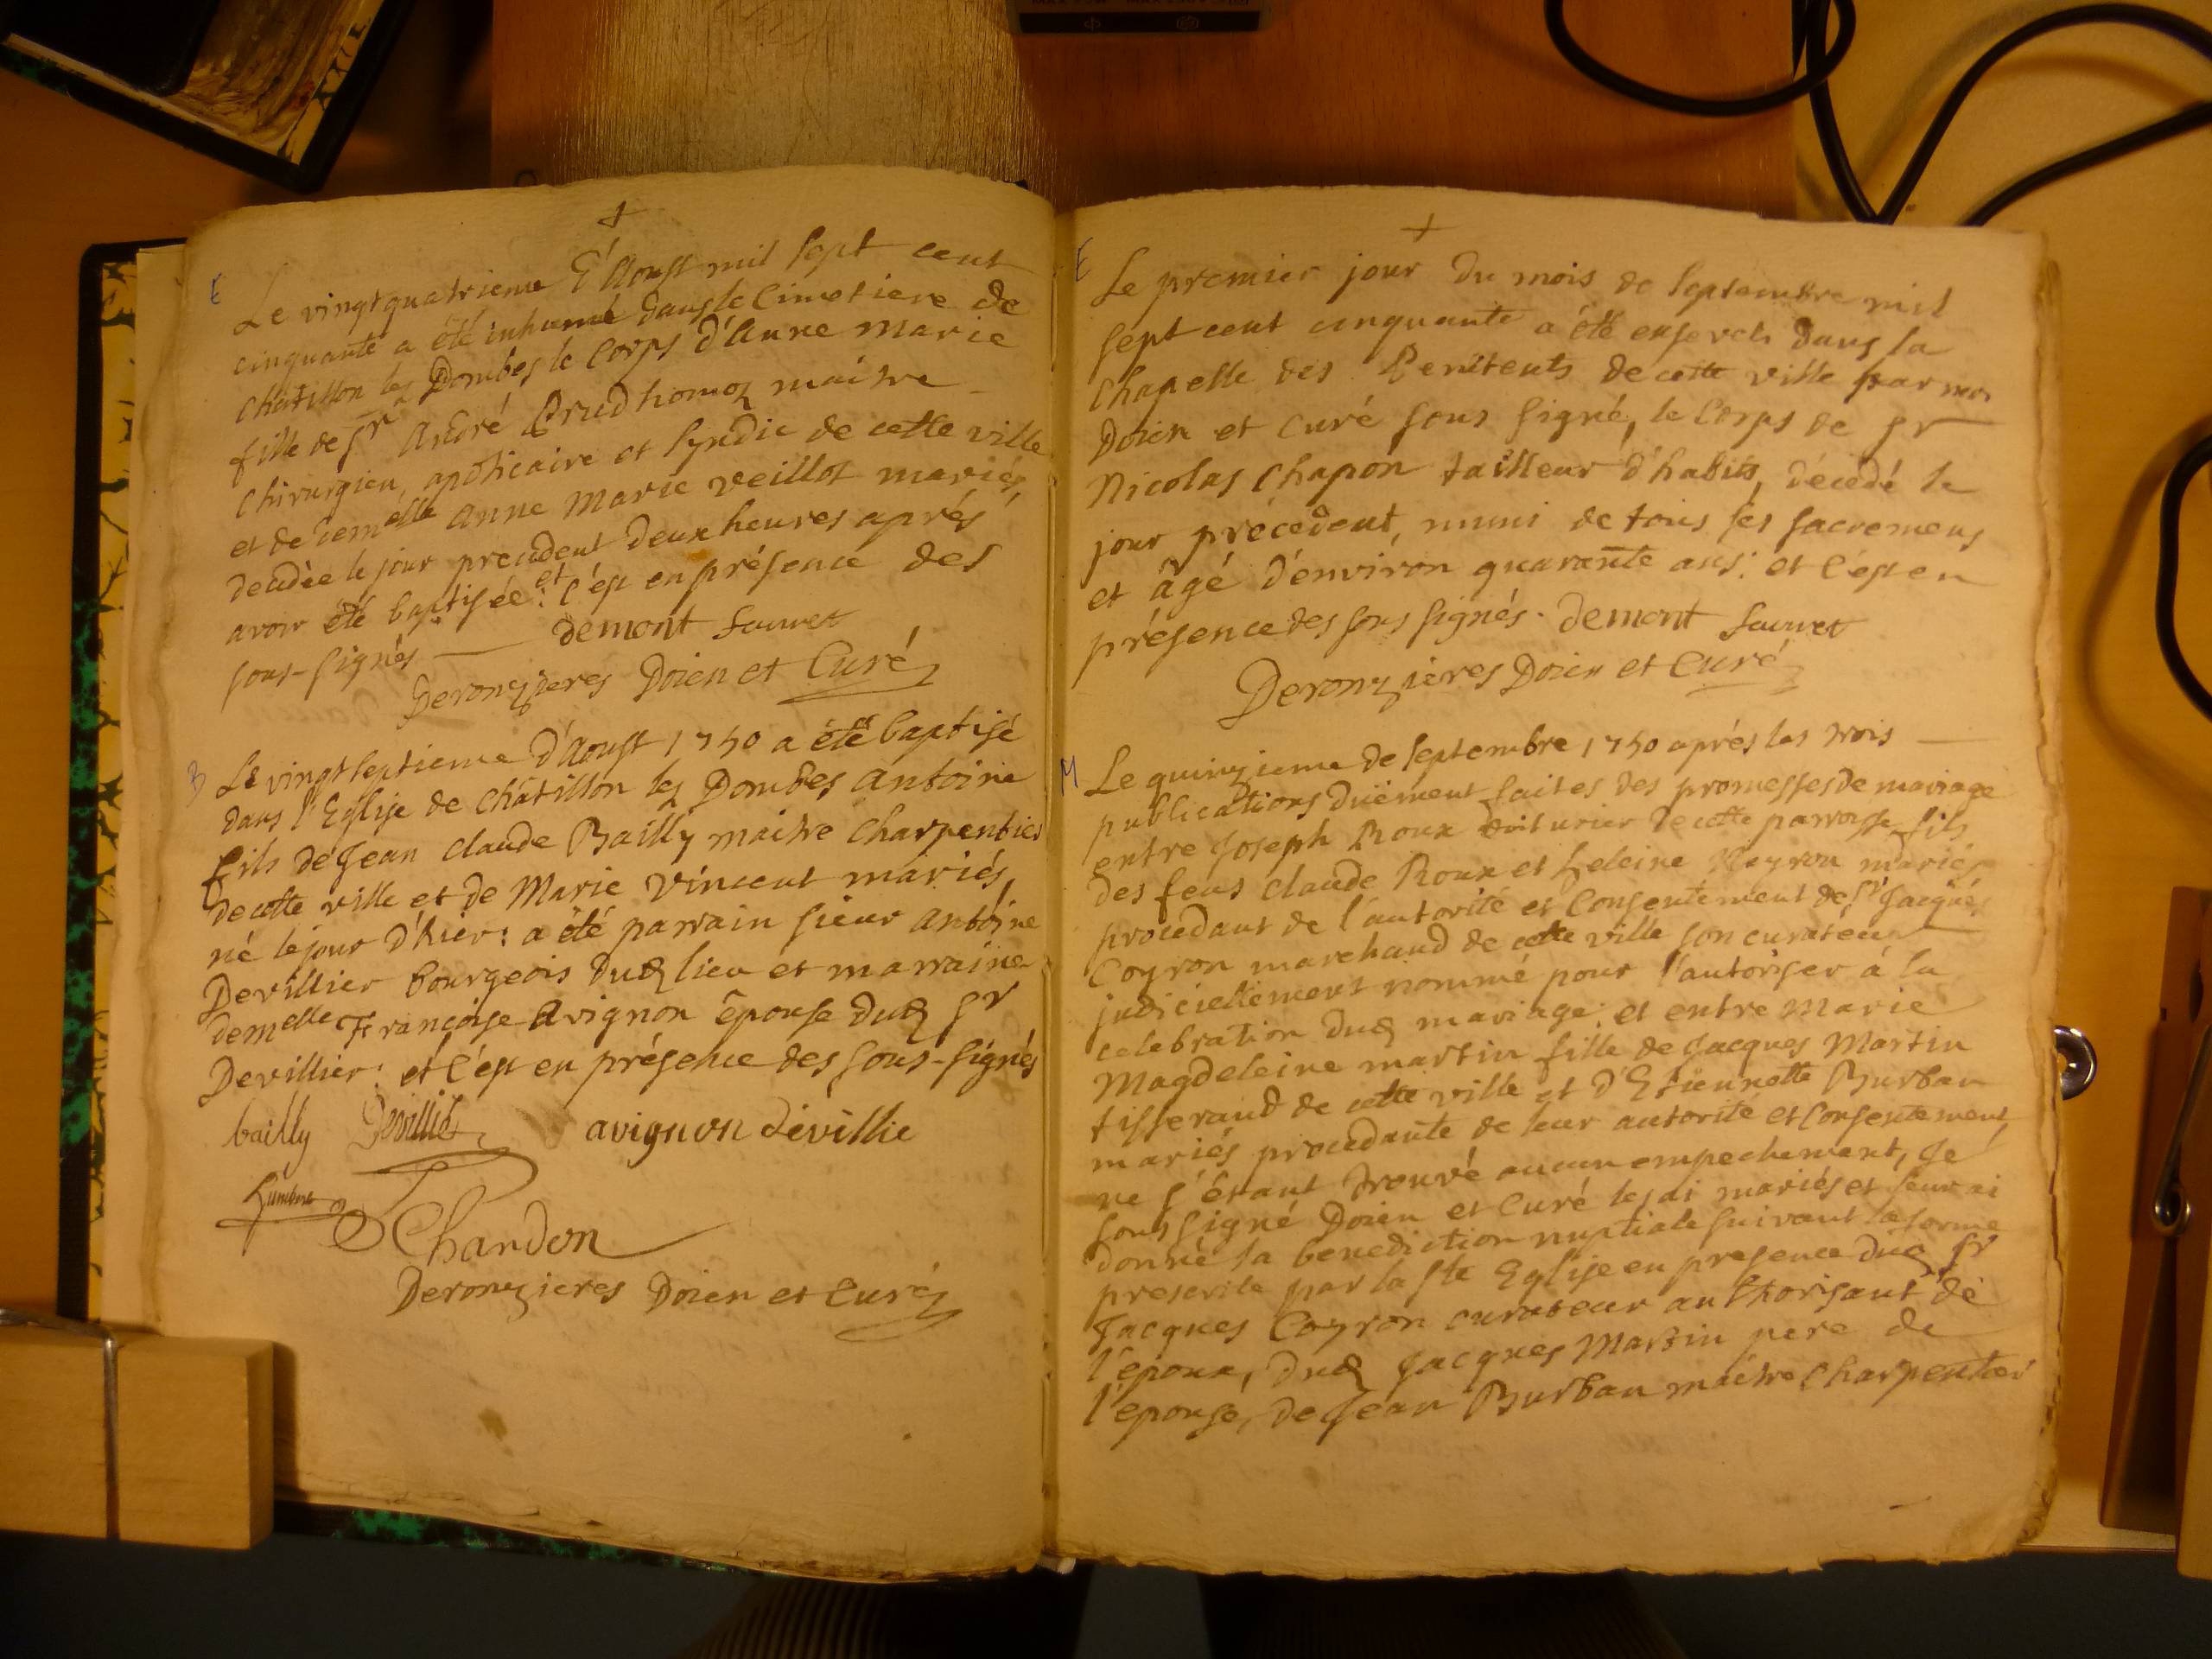 E
Le vingt quatrieme d'Aoust mil sept cent
cinquante a été inhumé dans le Cimetiere de
Châtillon les Dombes le Corps d'Anne Marie
fille de Sr André Prudhomme maitre
Chirurgien, apoticaire et Syndic de cette ville
et de demelle Anne Marie Veillot mariés,
decedée le jour precedent deux heures aprés
avoir été baptisée: et c'est en présence des
sous-signés — Demont Sauvet
Deronzieres Doien et Curé
B
Le vingt septieme d'Aoust 1750 a été baptisé
dans l'Eglise de Châtillon les Dombes Antoine
fils de Jean Claude Bailly maitre Charpentier
de cette ville et de Marie Vincent mariés,
né le jour d'hier: a été parrain sieur Antoine
Devillier bourgeois dud lieu et marraine
demelle Françoise Avignon épouse dud Sr
Devillier: et c'est en présence des sous-signés
bailly Devillié avignon dévillie
Chardon
Deronzieres Doien et Curé
E
Le premier jour du mois de Septembre mil
sept cent cinquante a été enseveli dans la
Chapelle des Penitents de cette ville par moi
Doien et Curé sous signé, le Corps de Sr
Nicolas Chapon tailleur d'habits, décedé le
jour précedent, muni de tous ses sacremens
et âgé d'environ quarante ans: et c'est en
présence des sous signés. Demont Sauvet
Deronzieres Doien et Curé
M
Le quinzieme de Septembre 1750 aprés les trois
publications duëment faites des promesses de mariage
entre Joseph Roux voiturier de cette parroisse fils
des feus Claude Roux et Heleine Neyron mariés
procedant de l'autorité et Consentement de Sr Jacques
Coyron marchand de cette ville son curateur
judiciellement nommé pour l'autoriser à la
celebration dud mariage: et entre Marie
Magdeleine Martin fille de Jacques Martin
tisserand de cette ville et d'Etiennette Burban
mariés procedante de leur autorité et Consentement
ne s'étant trouvé aucun empechement, Je
sous signé Doien et Curé les ai mariés et leur ai
donné la benediction nuptiale suivant la forme
prescrite par la Ste Eglise en presence dud Sr
Jacques Coyron curateur authorisant de
l'epoux, dud Jacques Martin pere de
l'epouse, de Jean Burban maitre Charpentier